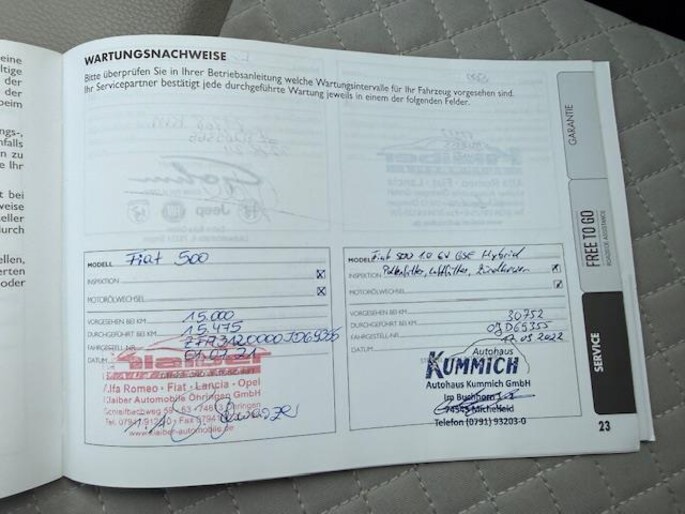 eine
ltige
der
der
beim
ngs-,
nfalls
n zu
e Ihr
t bei
weise
eller
durch
d,
erten
oder
WARTUNGSNACHWEISE
Bitte überprüfen Sie in Ihrer Betriebsanleitung welche Wartungsintervalle für Ihr Fahrzeug vorgesehen sind.
Ihr Servicepartner bestätigt jede durchgeführte Wartung jeweils in einem der folgenden Felder.
Jeep
MODELL Fiat 500
INSPEKTION
MOTORÖLWECHSEL
VORGESEHEN BEI KM 15.000
DURCHGEFÜHRT BEI KM 15.475
FAHRGESTELL-NR.
DATUM 01.07.21
Alfa Romeo · Fiat · Lancia · Opel
Klaiber Automobile Öhringen GmbH
74613 Öhringen
www.klaiber-automobile.de
MODELL Fiat 500 1.0 6V GSE Hybrid
INSPEKTION Pollenfilter, Luftfilter, Zündkerzen
MOTORÖLWECHSEL
VORGESEHEN BEI KM
DURCHGEFÜHRT BEI KM 30752
FAHRGESTELL-NR. 0JD69355
DATUM 17.05.2022
Autohaus
KUMMICH
Autohaus Kummich GmbH
Im Buchhorn
74545 Michelfeld
Telefon (0791) 93203-0
GARANTIE
FREE TO GO
ROADSIDE ASSISTANCE
SERVICE
23